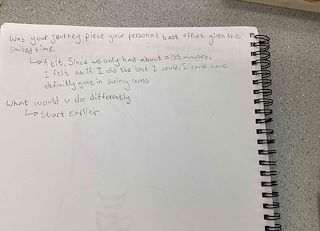 Was your journey piece your personal best effort given the
limited time.
↳ A bit. Since we only had about ≈ 135 minutes,
I felt as if I did the best I could. I could have
definitly gone in during recess
What would u do differently
↳ Start Earlier